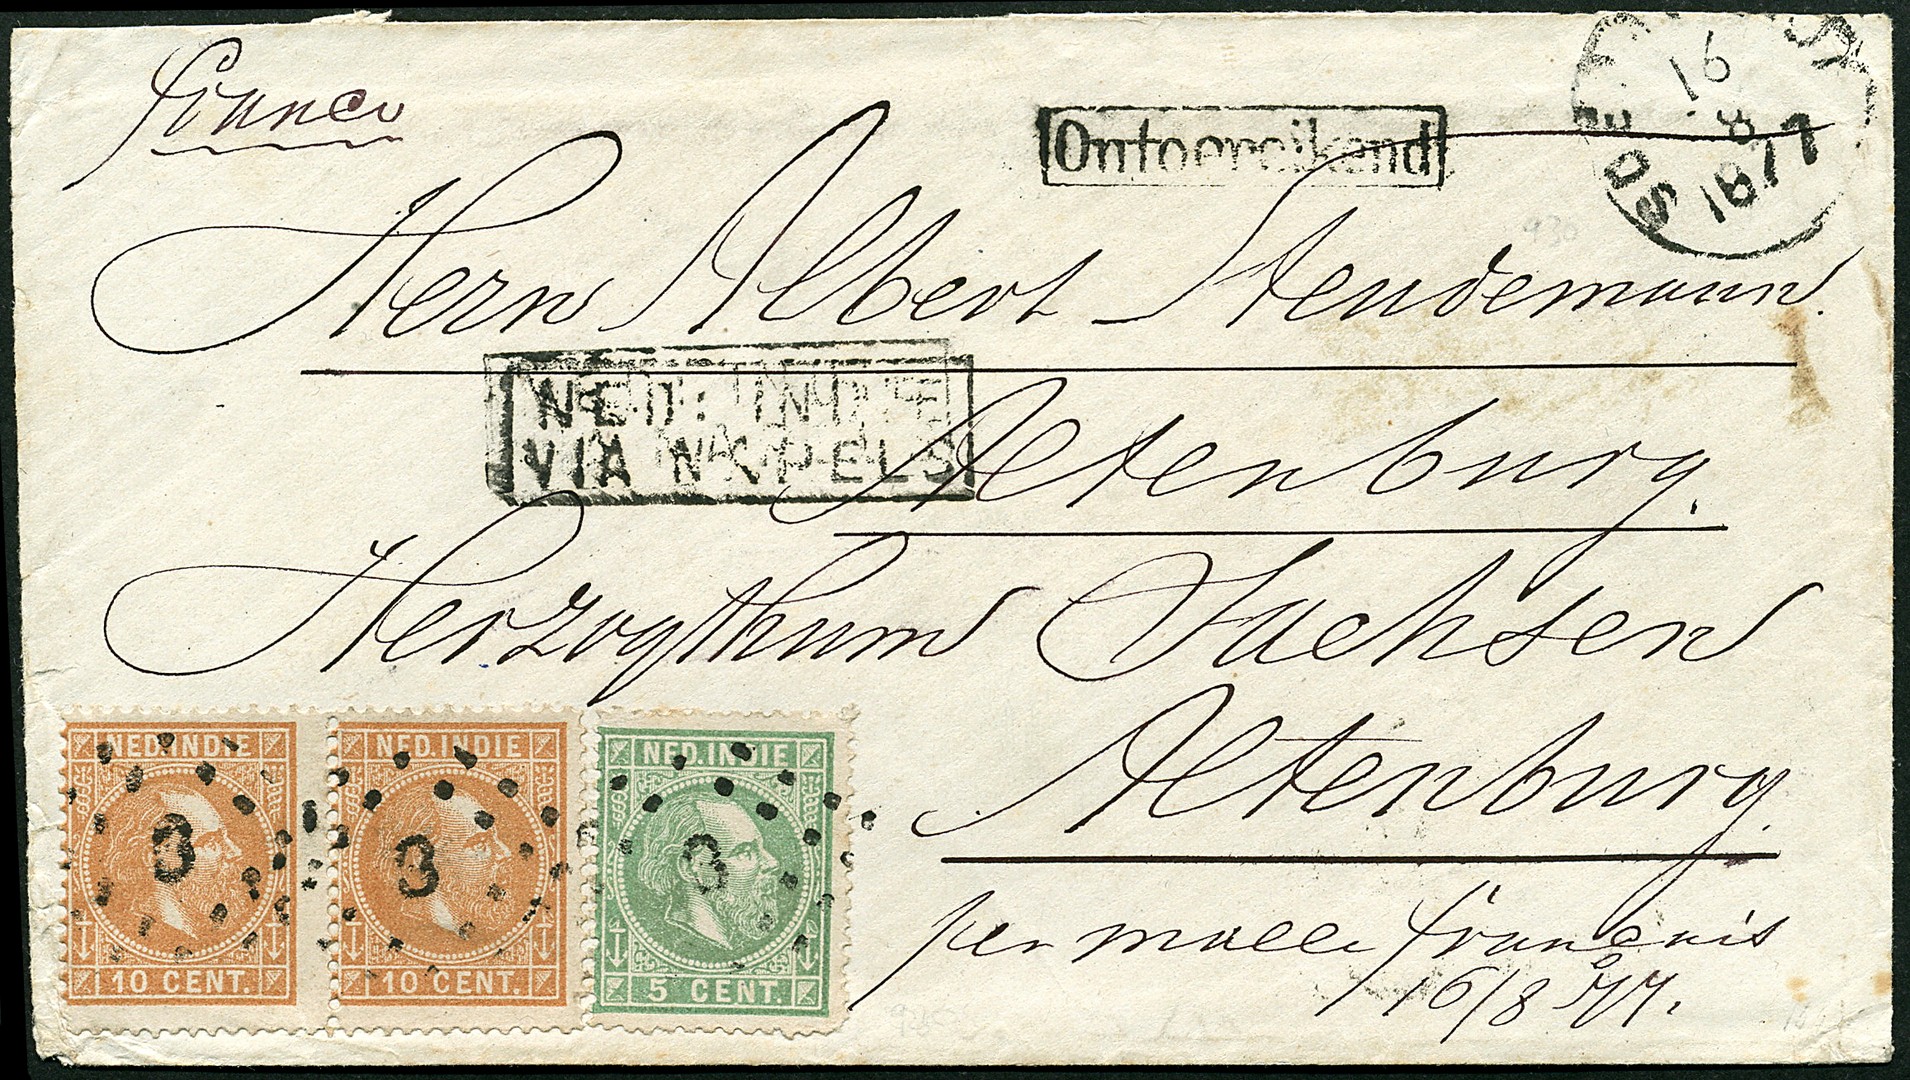 franco
Ontoereikend
16
8
1877
Herrn Albert Stendemann.
NED: INDIE
VIA NAPELS
Altenburg.
Herzogthum Sachsen
Altenburg.
NED. INDIE
10 CENT.
3
NED. INDIE
10 CENT.
3
NED. INDIE
5 CENT.
3
per malle français
16/8 77.